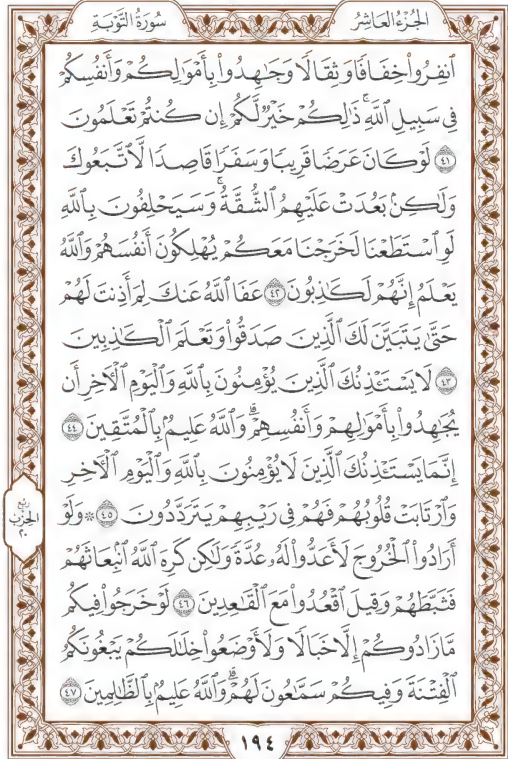 الجُزْءُ العَاشِرُ
سُورَةُ التَّوْبَةِ
ٱنفِرُوا۟ خِفَافًا وَثِقَالًا وَجَٰهِدُوا۟ بِأَمْوَٰلِكُمْ وَأَنفُسِكُمْ
فِى سَبِيلِ ٱللَّهِ ۚ ذَٰلِكُمْ خَيْرٌ لَّكُمْ إِن كُنتُمْ تَعْلَمُونَ
٤١ لَوْ كَانَ عَرَضًا قَرِيبًا وَسَفَرًا قَاصِدًا لَّٱتَّبَعُوكَ
وَلَٰكِنۢ بَعُدَتْ عَلَيْهِمُ ٱلشُّقَّةُ ۚ وَسَيَحْلِفُونَ بِٱللَّهِ
لَوِ ٱسْتَطَعْنَا لَخَرَجْنَا مَعَكُمْ يُهْلِكُونَ أَنفُسَهُمْ وَٱللَّهُ
يَعْلَمُ إِنَّهُمْ لَكَٰذِبُونَ ٤٢ عَفَا ٱللَّهُ عَنكَ لِمَ أَذِنتَ لَهُمْ
حَتَّىٰ يَتَبَيَّنَ لَكَ ٱلَّذِينَ صَدَقُوا۟ وَتَعْلَمَ ٱلْكَٰذِبِينَ
٤٣ لَا يَسْتَـْٔذِنُكَ ٱلَّذِينَ يُؤْمِنُونَ بِٱللَّهِ وَٱلْيَوْمِ ٱلْـَٔاخِرِ أَن
يُجَٰهِدُوا۟ بِأَمْوَٰلِهِمْ وَأَنفُسِهِمْ ۗ وَٱللَّهُ عَلِيمٌۢ بِٱلْمُتَّقِينَ ٤٤
إِنَّمَا يَسْتَـْٔذِنُكَ ٱلَّذِينَ لَا يُؤْمِنُونَ بِٱللَّهِ وَٱلْيَوْمِ ٱلْـَٔاخِرِ
وَٱرْتَابَتْ قُلُوبُهُمْ فَهُمْ فِى رَيْبِهِمْ يَتَرَدَّدُونَ ٤٥ ۞ وَلَوْ
أَرَادُوا۟ ٱلْخُرُوجَ لَأَعَدُّوا۟ لَهُۥ عُدَّةً وَلَٰكِن كَرِهَ ٱللَّهُ ٱنۢبِعَاثَهُمْ
فَثَبَّطَهُمْ وَقِيلَ ٱقْعُدُوا۟ مَعَ ٱلْقَٰعِدِينَ ٤٦ لَوْ خَرَجُوا۟ فِيكُم
مَّا زَادُوكُمْ إِلَّا خَبَالًا وَلَأَوْضَعُوا۟ خِلَٰلَكُمْ يَبْغُونَكُمُ
ٱلْفِتْنَةَ وَفِيكُمْ سَمَّٰعُونَ لَهُمْ ۗ وَٱللَّهُ عَلِيمٌۢ بِٱلظَّٰلِمِينَ ٤٧
رُبْع
الحِزْب
٢٠
١٩٤